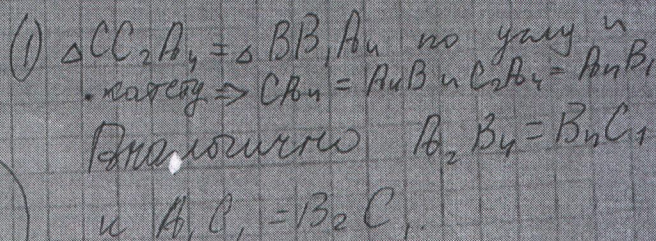 ① △CC₂A₄ = △BB₁A₄ по углу и
катету ⇒ CA₄ = A₄B и C₂A₄ = A₄B₁
Аналогично A₂B₄ = B₄C₁
и A₁C₁ = B₂C₁.